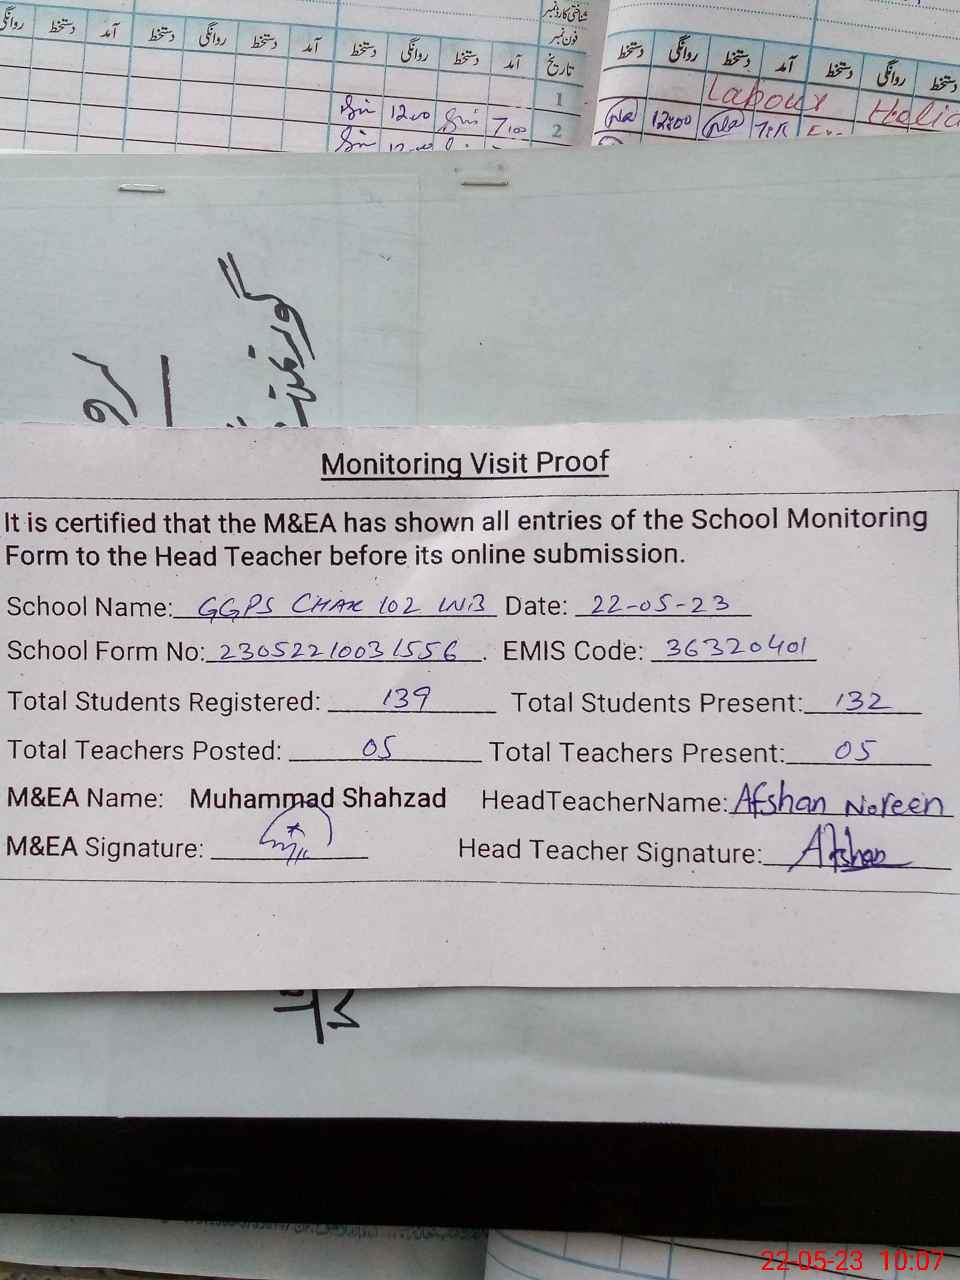 شناختی کارڈ نمبر
فون نمبر
روانگی دستخط آمد دستخط روانگی دستخط آمد دستخط روانگی دستخط آمد تاریخ
دستخط روانگی دستخط آمد دستخط روانگی دستخط
1
Labour
12:00 7:00 2
12:00
گورنمنٹ
Monitoring Visit Proof
It is certified that the M&EA has shown all entries of the School Monitoring
Form to the Head Teacher before its online submission.
School Name: GGPS CHAK 102 WB Date: 22-05-23
School Form No: 23052210031556. EMIS Code: 36320401
Total Students Registered: 139 Total Students Present: 132
Total Teachers Posted: 05 Total Teachers Present: 05
M&EA Name: Muhammad Shahzad HeadTeacherName: Afshan Noreen
M&EA Signature: Head Teacher Signature: Afshan
22-05-23 10:07